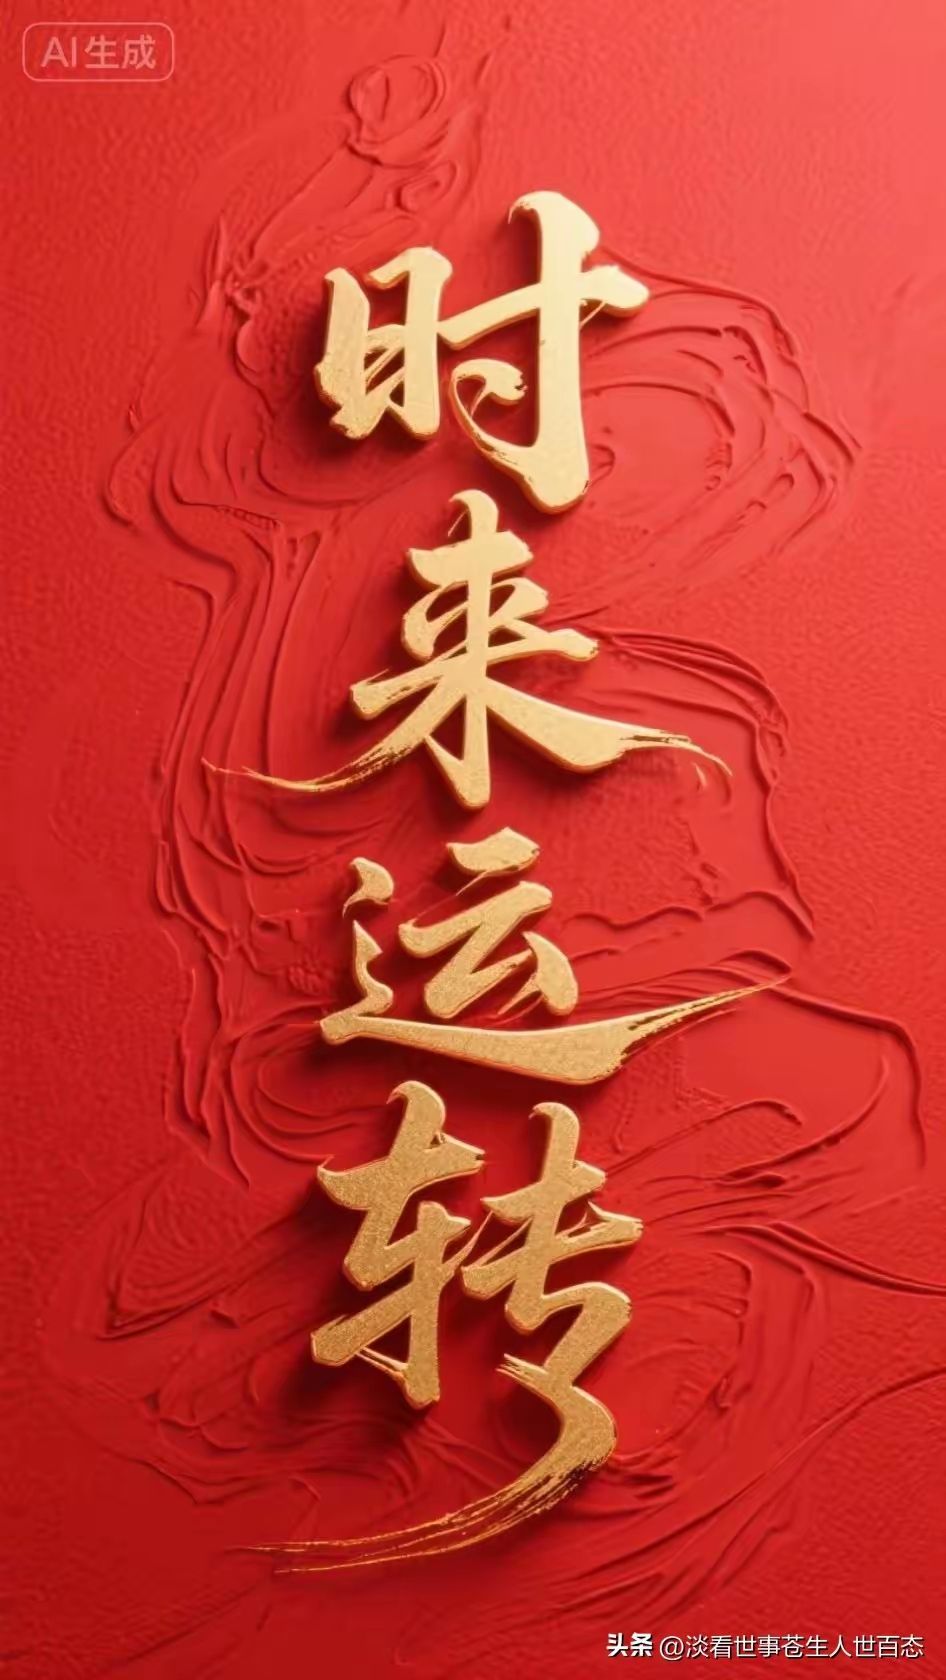 AI生成
时来运转
头条 @淡看世事苍生人世百态